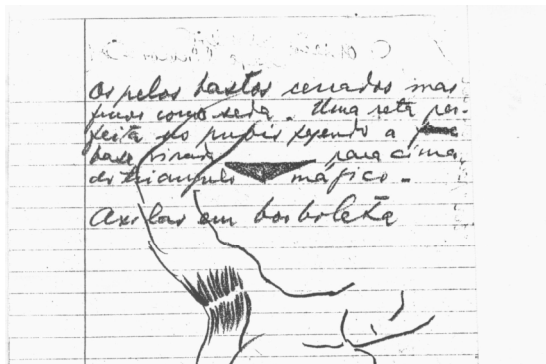 Os pelos bastos cerrados mas
finos como seda. Uma reta per-
feita no pubis fazendo a
base virada para cima
do triangulo mágico -
Axilas em borboleta